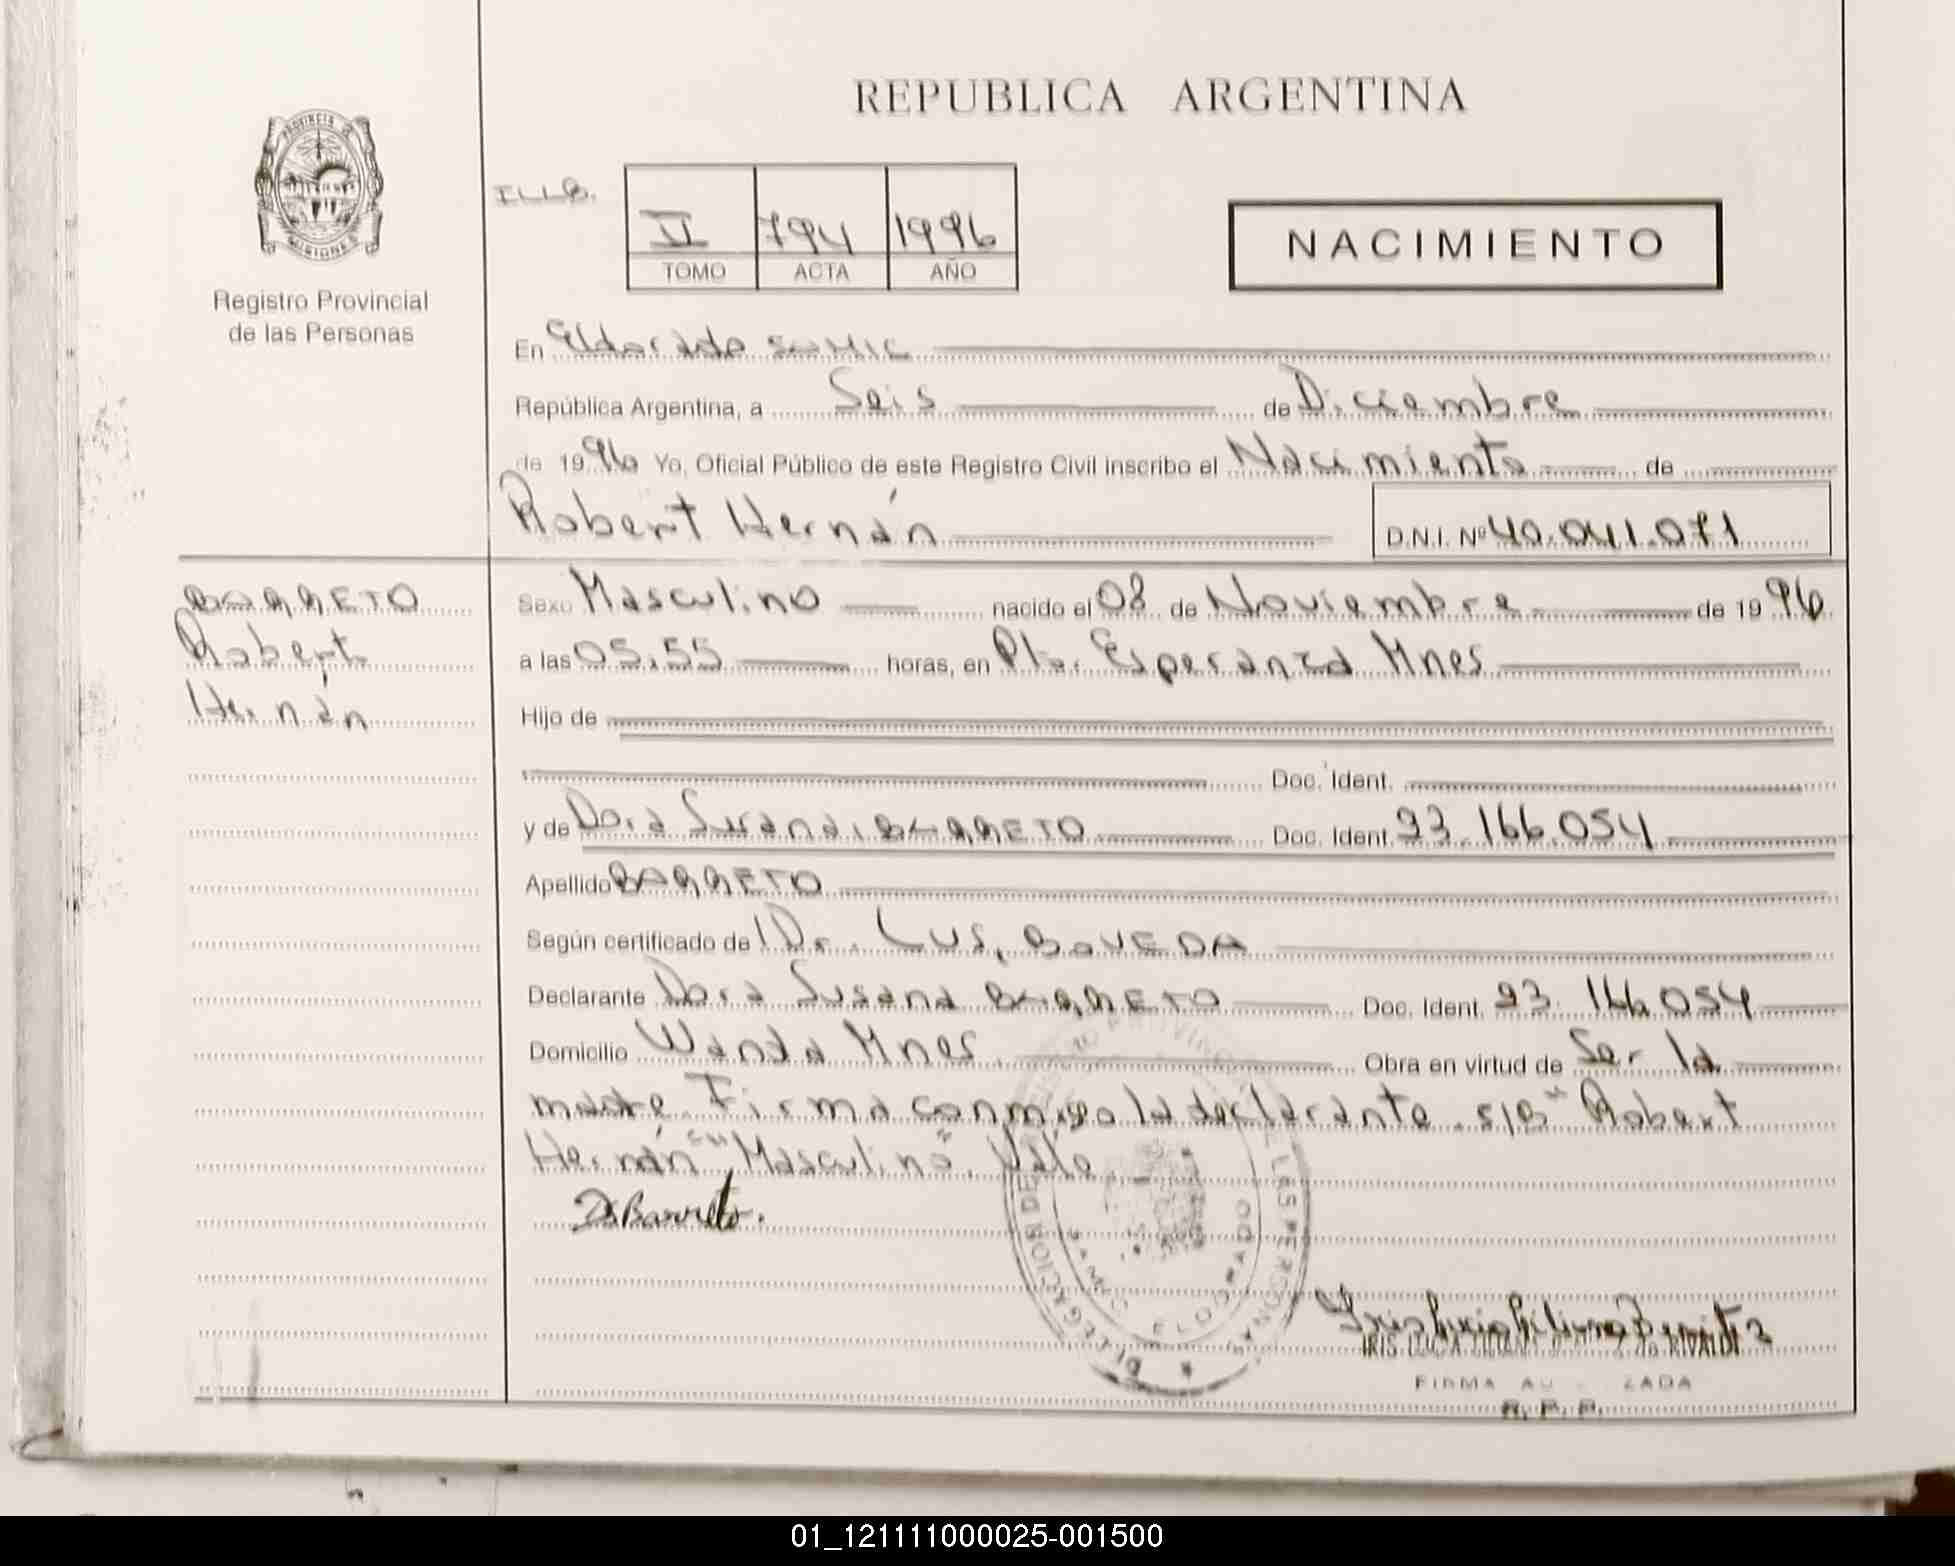 REPUBLICA ARGENTINA
PROVINCIA DE
MISIONES
Registro Provincial
de las Personas
ILLB.
II 794 1996
TOMO ACTA AÑO
NACIMIENTO
En Eldorado SAMIC
República Argentina, a Seis de Diciembre
de 1996 Yo, Oficial Público de este Registro Civil inscribo el Nacimiento de
Robert Hernán D.N.I. Nº 40.041.071
BARRETO
Robert
Hernán
Sexo Masculino nacido el 08 de Noviembre de 1996
a las 05.55 horas, en Pto. Esperanza Mnes
Hijo de
Doc. Ident.
y de Dora Susana BARRETO Doc. Ident. 93.166.054
Apellido BARRETO
Según certificado de Dr. Luis BOVEDA
Declarante Dora Susana BARRETO Doc. Ident. 93.166.054
Domicilio Wanda Mnes Obra en virtud de Ser la
madre. Firma conmigo la declarante. S/B "Robert
Hernán" "Masculino". Vale
D.S. Barreto.
DELEGACION DE LAS PERSONAS
ELDORADO
FIRMA AU ZADA
R. P. P.
01_121111000025-001500